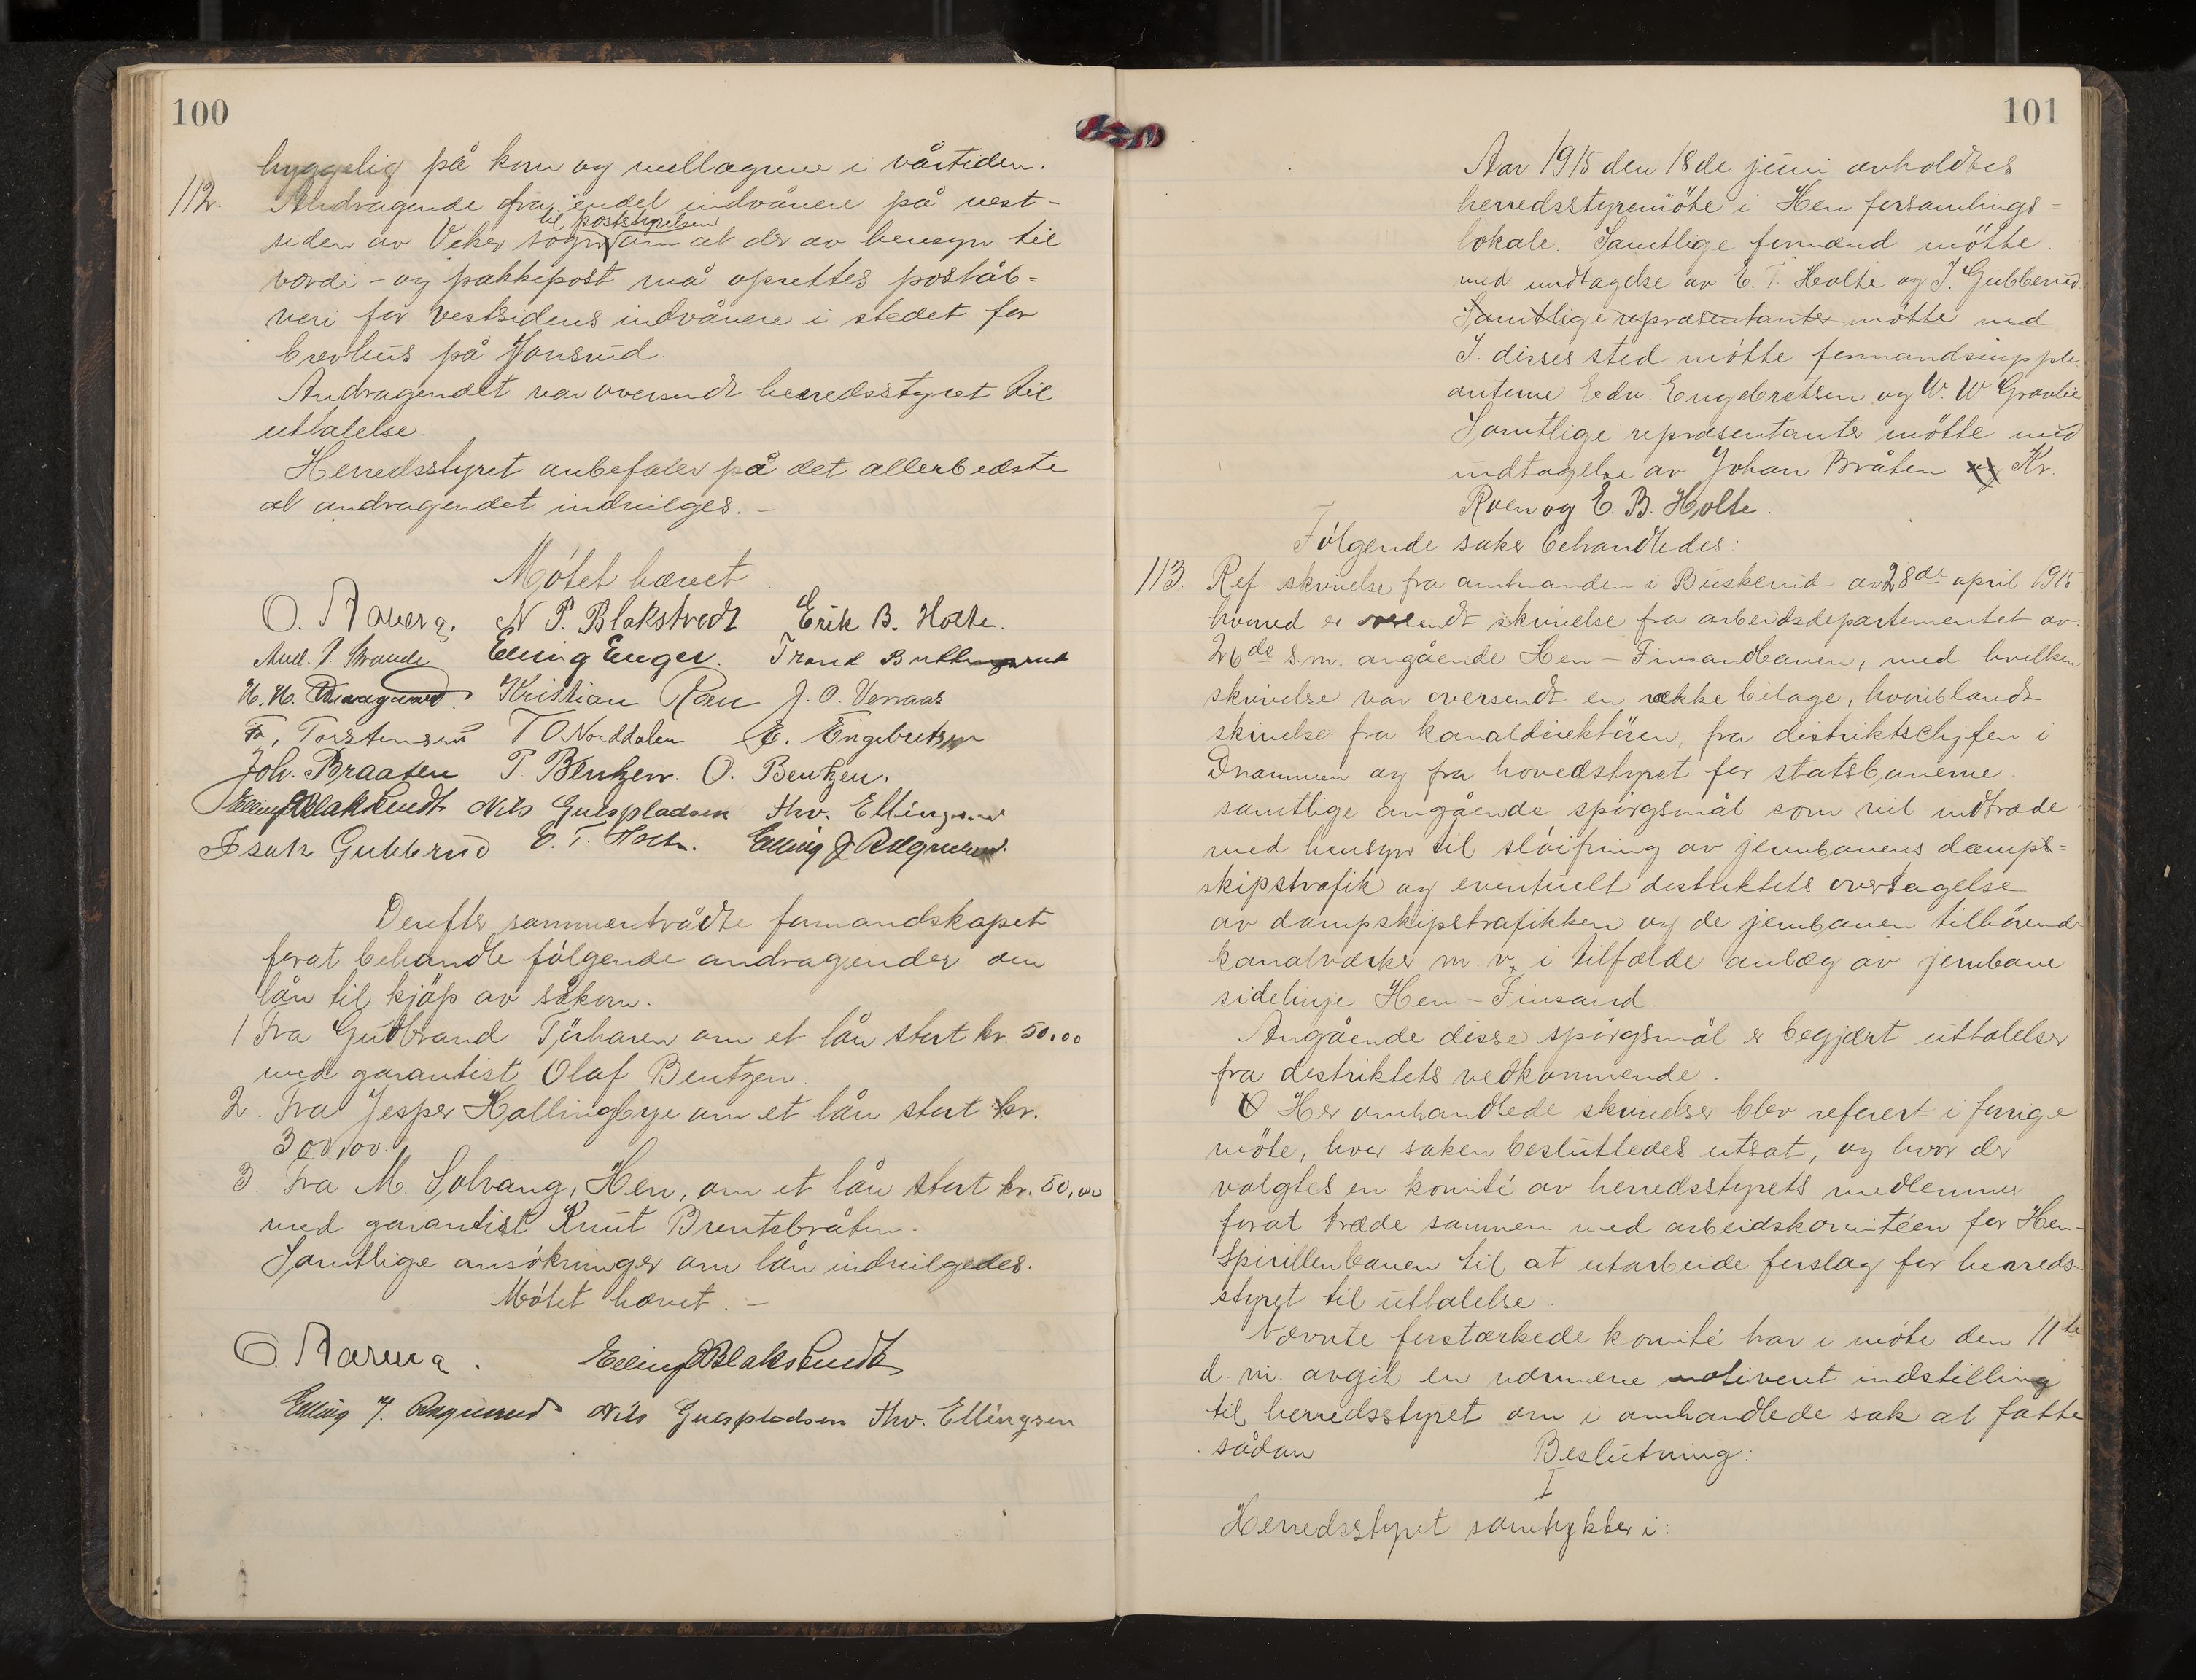 100
hyggelig på korn og mellagrene i vårtiden.
112. Andragende fra endel indvånere på vest-
til poststyrelsen
siden av Viker sogn om at der av hensyn til
værdi- og pakkepost må oprettes poståb=
neri for vestsidens indvånere i stedet for
brevhus på Jonsrud.
Andragendet var oversendt herredsstyret til
uttalelse.
Herredsstyret anbefaler på det allerbedste
at andragendet indvilges. –
Møtet hævet.
O. N. P. Blakstvedt Erik B. Holte.
And. P. Strande Elling Enger. Trond
H. H. Kristian Roen J. O. Venaas
Fr. Torstensen T O Norddalen E. Engebretsen
Joh. Braaten P. Bentzen. O. Bentzen.
Elling Blakstvedt Nils Gulspladsen Thv. Ellingsen
Isak Gubberud E. T. Holte. Elling J.
Derefter sammentrådte formandskapet
forat behandle følgende andragender om
lån til kjøp av såkorn.
1 Fra Gudbrand om et lån stort kr. 50.00
med garantist Olaf Bentzen.
2. Fra Jesper Hallingbye om et lån stort kr.
300,00.
3. Fra M. Solvang, Hen, om et lån stort kr. 50,00
med garantist Knut Brentebråten.
Samtlige ansökninger om lån indvilgedes.
Møtet hævet. –
O. Elling Blakstvedt
Elling J. Nils Gulspladsen Thv. Ellingsen
101
Aar 1915 den 18de juni avholdtes
herredsstyremöte i Hen forsamlings=
lokale. Samtlige formænd mötte
med undtagelse av E. T. Holte og I. Gubberud
Samtlige repræsentanter mötte med
I disses sted mötte formandssuple
anterne Edv. Engebretsen og W. W.
Samtlige repræsentanter mötte med
undtagelse av Johan Bråten og Kr.
Roen og E. B. Holte.
Følgende saker behandledes:
113. Ref. skrivelse fra amtmanden i Buskerud av 28de april 1915
hvorved er oversendt skrivelse fra arbeidsdepartementet av
26de s.m. angående Hen – Finsandbanen, med hvilken
skrivelse var oversendt en række bilage, hvoriblandt
skrivelse fra kanaldirektören, fra distriktschefen i
Drammen og fra hovedstyret for statsbanerne
samtlige angående spørgsmål som vil indtræde
med hensyn til sløifning av jernbanens damp=
skipstrafik og eventuelt distriktets overtagelse
av dampskipstrafikken og de jernbanen tilhörende
kanalværker m. v. i tilfælde anlæg av jernbane
sidelinje Hen – Finsand.
Angående disse spørgsmål er begjært uttalelser
fra distriktets vedkommende.
Her omhandlede skrivelser blev referert i forrige
möte, hvor saken besluttedes utsat, og hvor der
valgtes en komité av herredsstyrets medlemmer
forat træde sammen med arbeidskomitéen for Hen-
Spirillenbanen til at utarbeide forslag for herreds-
styret til uttalelse.
Nævnte forstærkede komité har i möte den 11te
d. m. avgit en nærmere motivert indstilling
til herredsstyret om i omhandlede sak at fatte
sådan Beslutning:
I
Herredsstyret samtykker i: